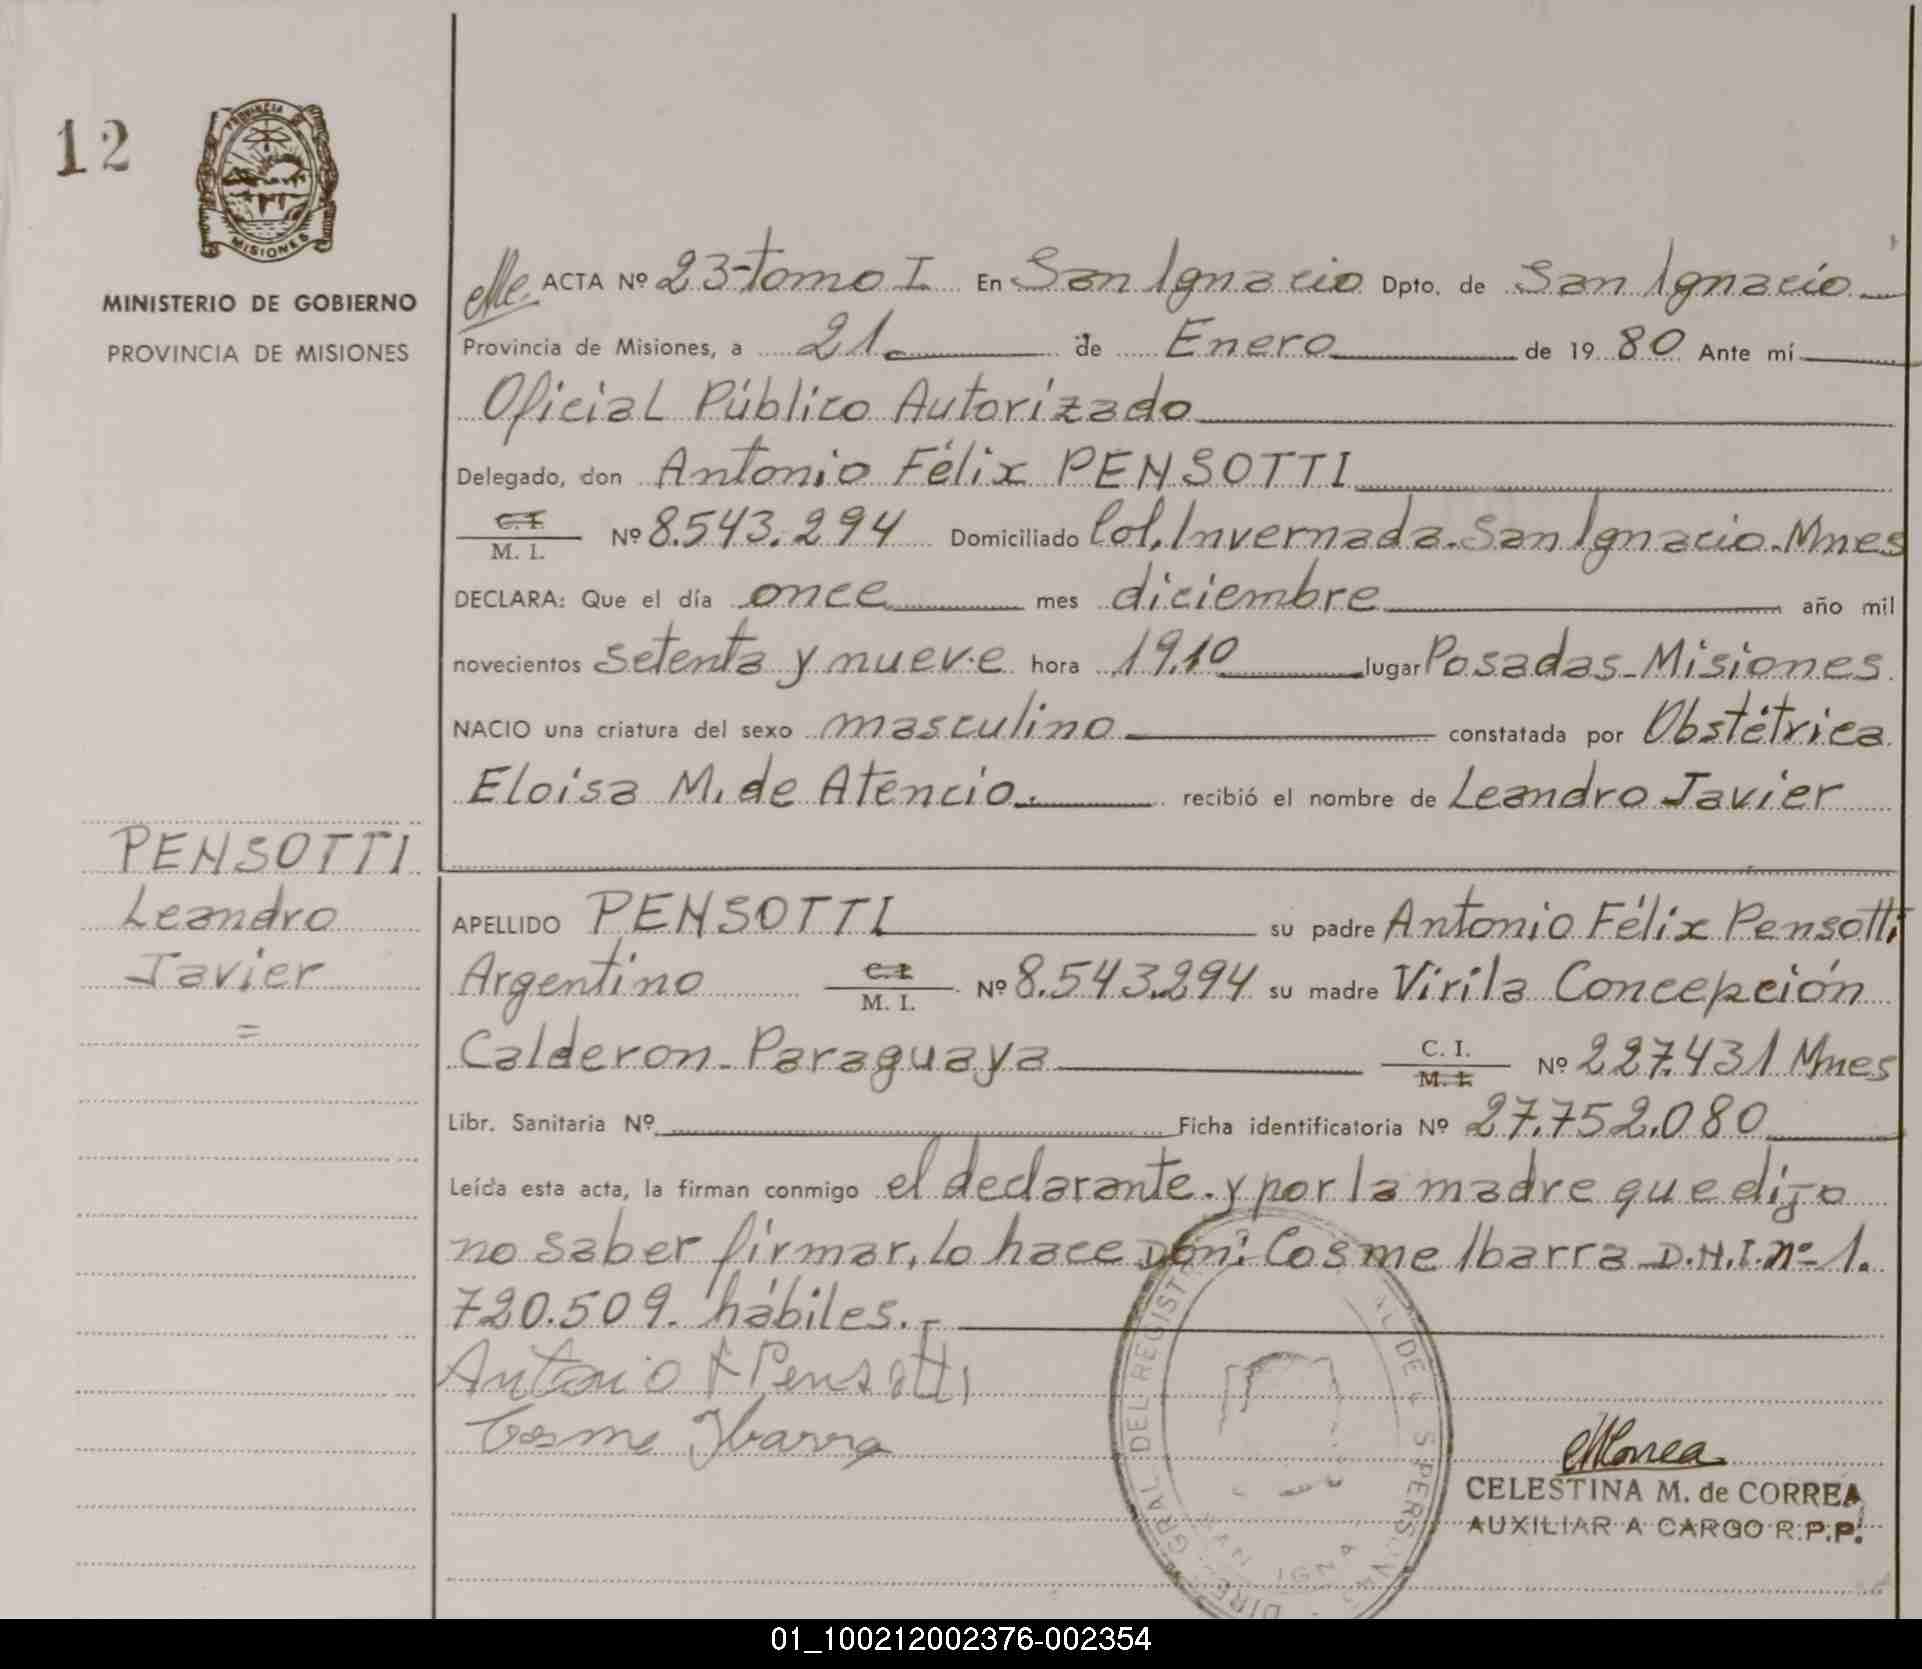 12
PROVINCIA
MISIONES
MINISTERIO DE GOBIERNO
PROVINCIA DE MISIONES
ACTA Nº 23-tomo I. En San Ignacio Dpto. de San Ignacio
Provincia de Misiones, a 21 de Enero de 1980 Ante mí
Oficial Público Autorizado
Delegado, don Antonio Félix PENSOTTI
C.I. Nº 8.543.294 Domiciliado Col. Invernada. San Ignacio. Mnes
M. I.
DECLARA: Que el día once mes diciembre año mil
novecientos setenta y nueve hora 19.10 lugar Posadas-Misiones.
NACIO una criatura del sexo masculino constatada por Obstétrica
Eloisa M. de Atencio. recibió el nombre de Leandro Javier
PENSOTTI
Leandro
Javier
=
APELLIDO PENSOTTI su padre Antonio Félix Pensotti
Argentino C.I. Nº 8.543.294 su madre Virila Concepción
M. I.
Calderon-Paraguaya C. I. Nº 227.431 Mnes
M. I.
Libr. Sanitaria Nº Ficha identificatoria Nº 27.752.080
Leída esta acta, la firman conmigo el declarante. y por la madre que dijo
no saber firmar, lo hace Don: Cosme Ibarra D.N.I. nº 1.
720.509. hábiles.-
Antonio F Pensotti
Cosme Ibarra
CELESTINA M. de CORREA
AUXILIAR A CARGO R.P.P.
01_100212002376-002354